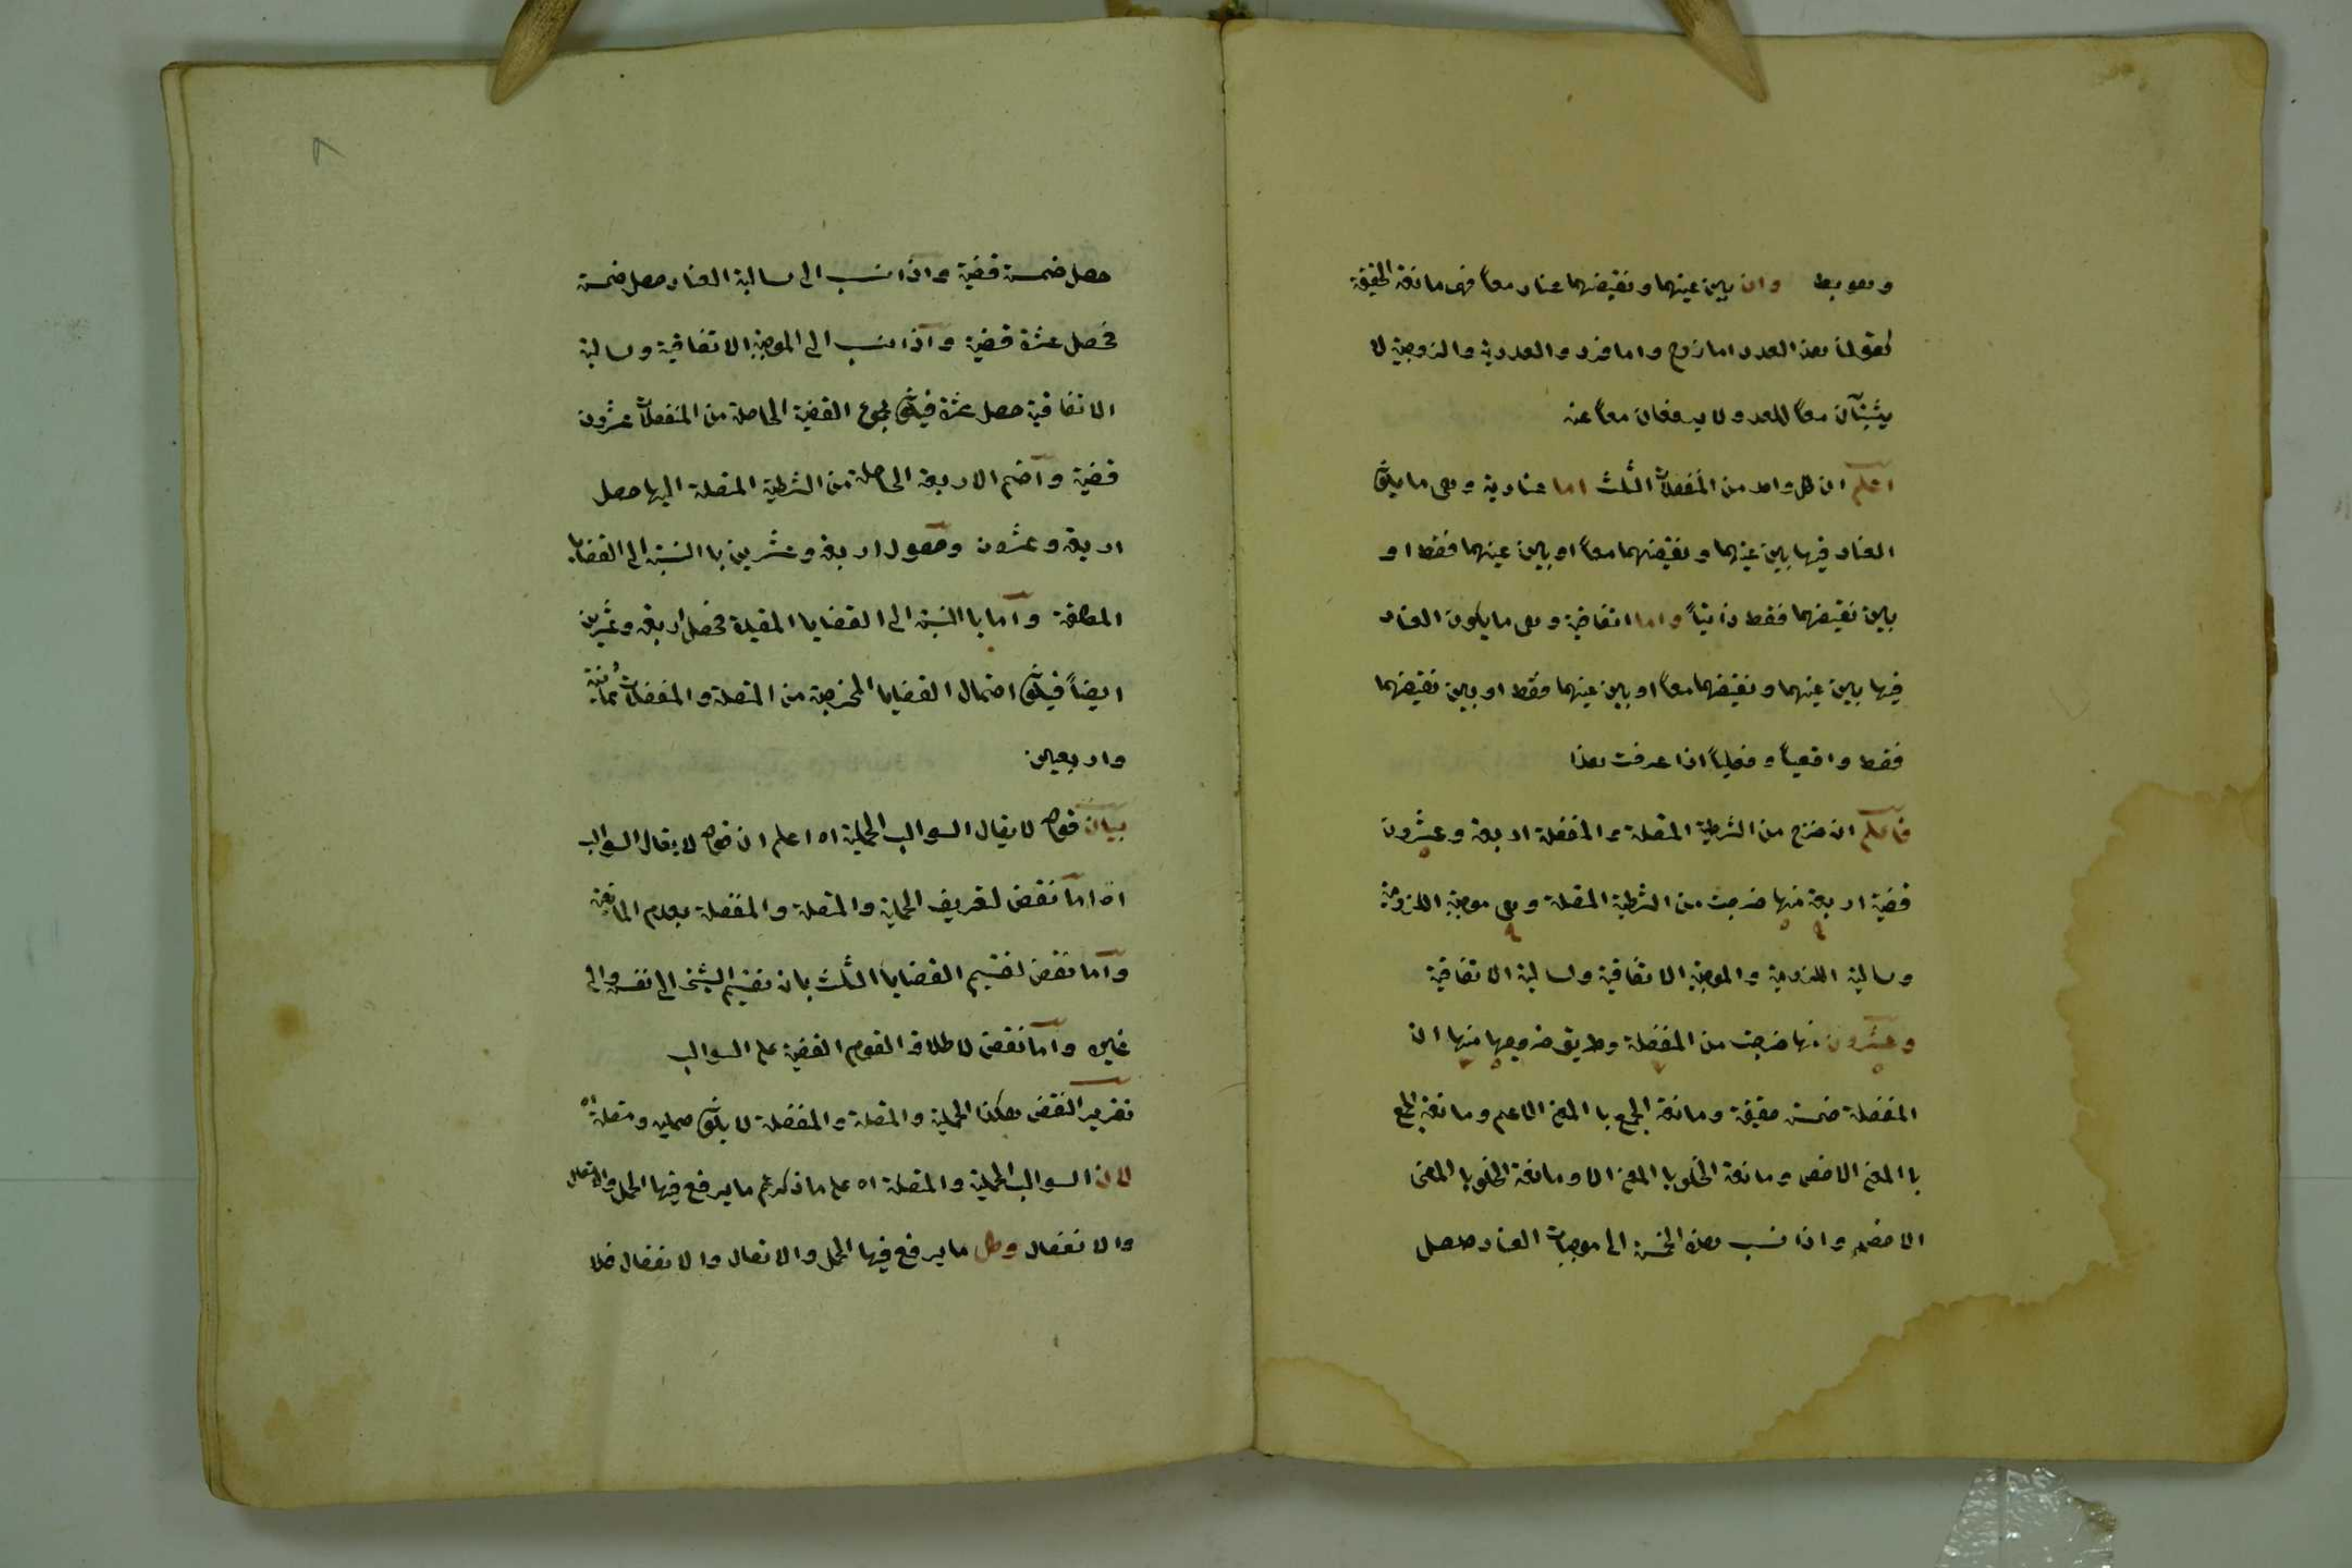 وهو بط وان بين عينهما ونقيضهما عناد معاً فهى مانعة الحقيقة
كقولنا هذا العدد اما زوج واما فرد والعددية والزوجية لا
يثبتان معاً للعدد ولا يرفعان معاً عنه
اعلم ان كل واحد من المنفصلات الثلث اما عنادية وهى ما يكون
العناد فيها بين عينهما ونقيضهما معاً او بين عينهما فقط او
بين نقيضهما فقط ذاتياً واما اتفاقية وهى ما يكون العناد
فيها بين عينهما ونقيضهما معاً او بين عينهما فقط او بين نقيضهما
فقط واقعياً وفعلياً اذا عرفت هذا
فاعلم ان خرج من الشرطية المتصلة والمنفصلة اربعة وعشرون
قضية اربعة منها خرجت من الشرطية المتصلة وهى موجبة اللزومية
وسالبة اللزومية والموجبة الاتفاقية وسالبة الاتفاقية
وعشرون منها خرجت من المنفصلة وطريق خروجها منها ان
المنفصلة خمسة حقيقة ومانعة الجمع با المعنى الاعم ومانعة الجمع
با المعنى الاخص ومانعة الخلو با المعنى الا ومانعة الخلو با المعنى
الاخص واذا نسب هذه الخمسة الى موجبات العناد حصل
حصل خمسة قضية واذا نسب الى سالبة العناد حصل خمسة
فحصل عشرة قضية واذا نسب الى الموجبة الاتفاقية وسالبة
الاتفاقية حصل عشرة فيكون مجموع القضية الحاصلة من المنفصلات عشرون
قضية واضم الاربعة الحاصلة من الشرطية المتصلة اليها حصل
اربعة وعشرون وحصول اربعة وعشرين با النسبة الى القضايا
المطلقة واما با النسبة الى القضايا المقيدة فحصل اربعة وعشرين
ايضاً فيكون احتمال القضايا المخرجة من المتصلة والمنفصلات ثمانية
واربعين
بيان قوله لا يقال السوالب الحملية اه اعلم ان قوله لا يقال السوالب
اه اما نقض لتعريف الحملية والمتصلة والمنفصلة بعدم المانعية
واما نقض لتقسيم القضايا الثلث بان تقسيم الشئ الى نفسه والى
غيره واما نقض لاطلاق القوم القضية على السوالب
تقرير النقض هكذا الحملية والمتصلة والمنفصلة لا يكون حملية ومتصلة اه
لان السوالب الحملية والمتصلة اه على ما ذكرتم ما يرفع فيها الحمل والاتصال
والانفصال وكل ما يرفع فيها الحمل والاتصال والانفصال فلا